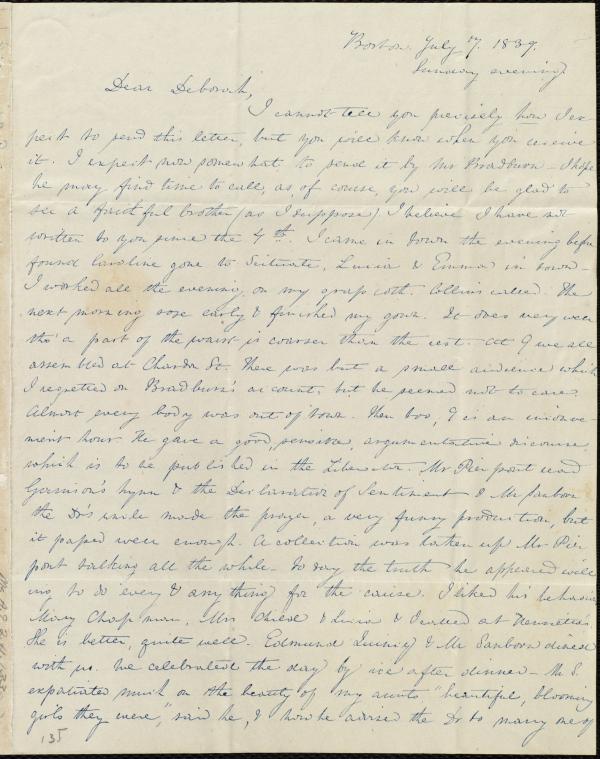 Boston July 7. 1839.
Sunday evening.
Dear Deborah,
I cannot tell you precisely how I ex-
pect to send this letter, but you will know when you receive
it. I expect now somewhat to send it by Mr Bradburn - I hope
he may find time to call, as of course, you will be glad to
see a faithful brother (as I suppose) I believe I have not
written to you since the 4th. I came in town the evening before
found Caroline gone to Scituate, Lucia & Emma in town -
I worked all the evening on my grass cloth. Collins called. The
next morning rose early & finished my gown. It does very well
tho' a part of the waist is coarser than the rest. At 9 we all
assembled at Chardon St. There was but a small audience which
I regretted on Bradburn's account, but he seemed not to care.
Almost every body was out of town. Then too, 9 is an inconve-
nient hour. He gave a good, sensible, argumentative discourse,
which is to be published in the Liberator. Mr Pierpont read
Garrison's hymn & the Declaration of Sentiment & Mr Sanborn
the Dr's uncle made the prayer, a very funny production, but
it passed well enough. A collection was taken up Mr Pier
pont talking all the while. To say the truth he appeared will
ing to do every & any thing for the cause. I liked his behavior
Mary Chapman, Mrs Child & Lucia & I called at Henrietta's.
She is better, quite well. Edmund Quincy & Mr Sanborn dined
with us. We celebrated the day by ice after dinner - Mr S.
expatiated much on the beauty of my aunts "beautiful, blooming
girls they were," said he, & how he advised the Dr to marry one of
135